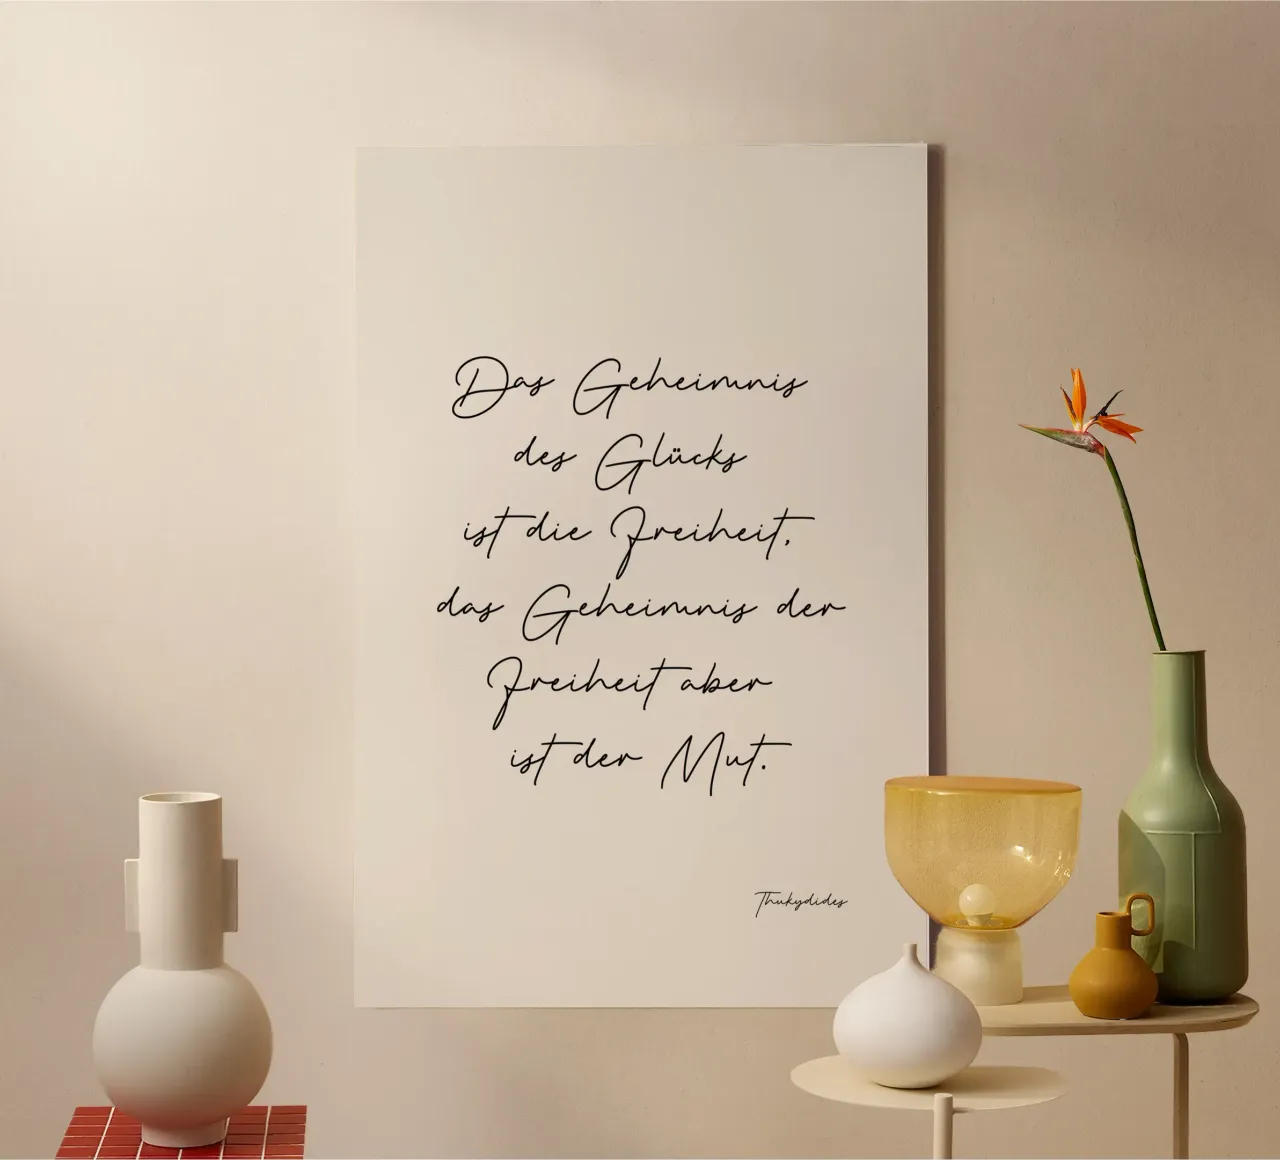 Das Geheimnis
des Glücks
ist die Freiheit,
das Geheimnis der
Freiheit aber
ist der Mut.
Thukydides